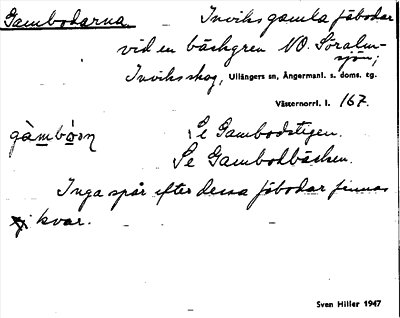 Gambodarna Inviks gamla fäbodar
vid en bäckgren NO. Söralm-
sjön;
Inviks skog, Ullångers sn, Ångermanl. s. doms. tg.
Västernorrl. l. 167.
gàmbòɷn Se Gambodstigen.
Se Gambodbäcken.
Inga spår efter dessa fäbodar finnas
ej kvar.
Sven Hiller 1947